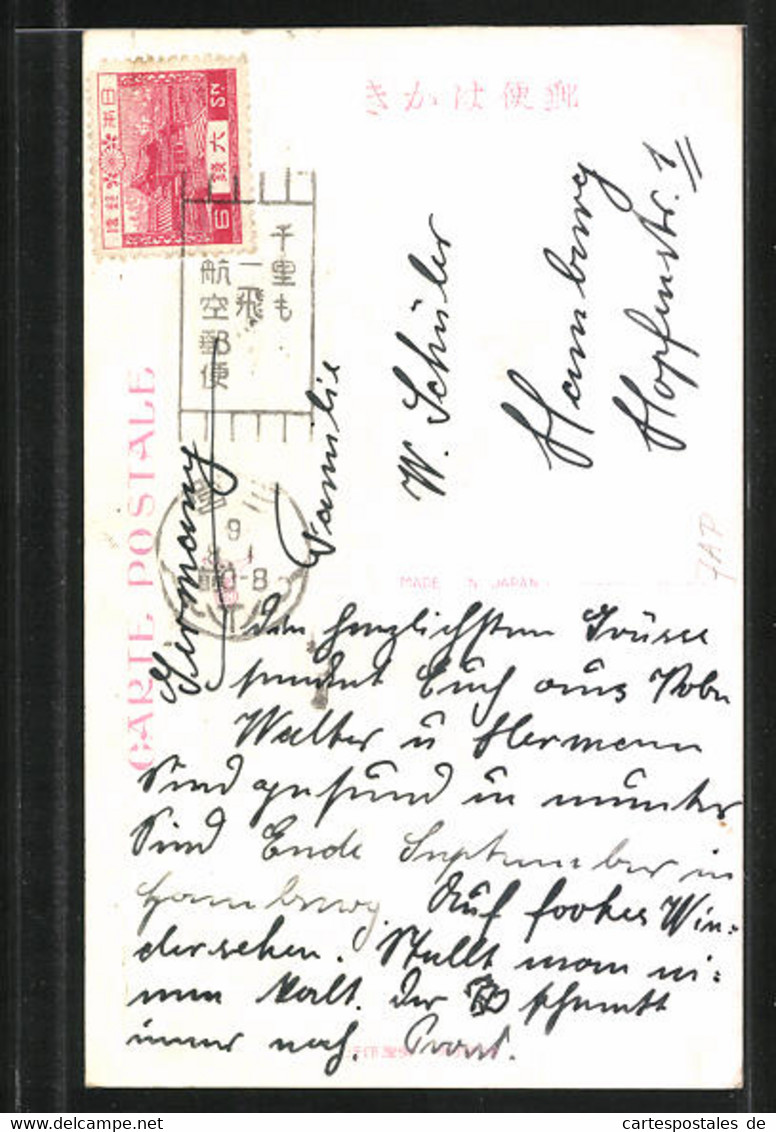 郵便はかき
日本
郵便
六銭
6 Sn
千里も
一飛
航空郵便
CARTE POSTALE
MADE IN JAPAN
Germany
Familie
W. Schüler
Hamburg
Hopfenstr. 1
9
前0-8
die herzlichsten Grüsse
sendet Euch aus Kobe
Walter u Hermann
Sind gesund u munter
Sind Ende September in
Hamburg. Auf frohes Wie-
dersehen. Stellt man ei-
nen kalt. der schmekt
immer noch. Prost.
cartespostales de